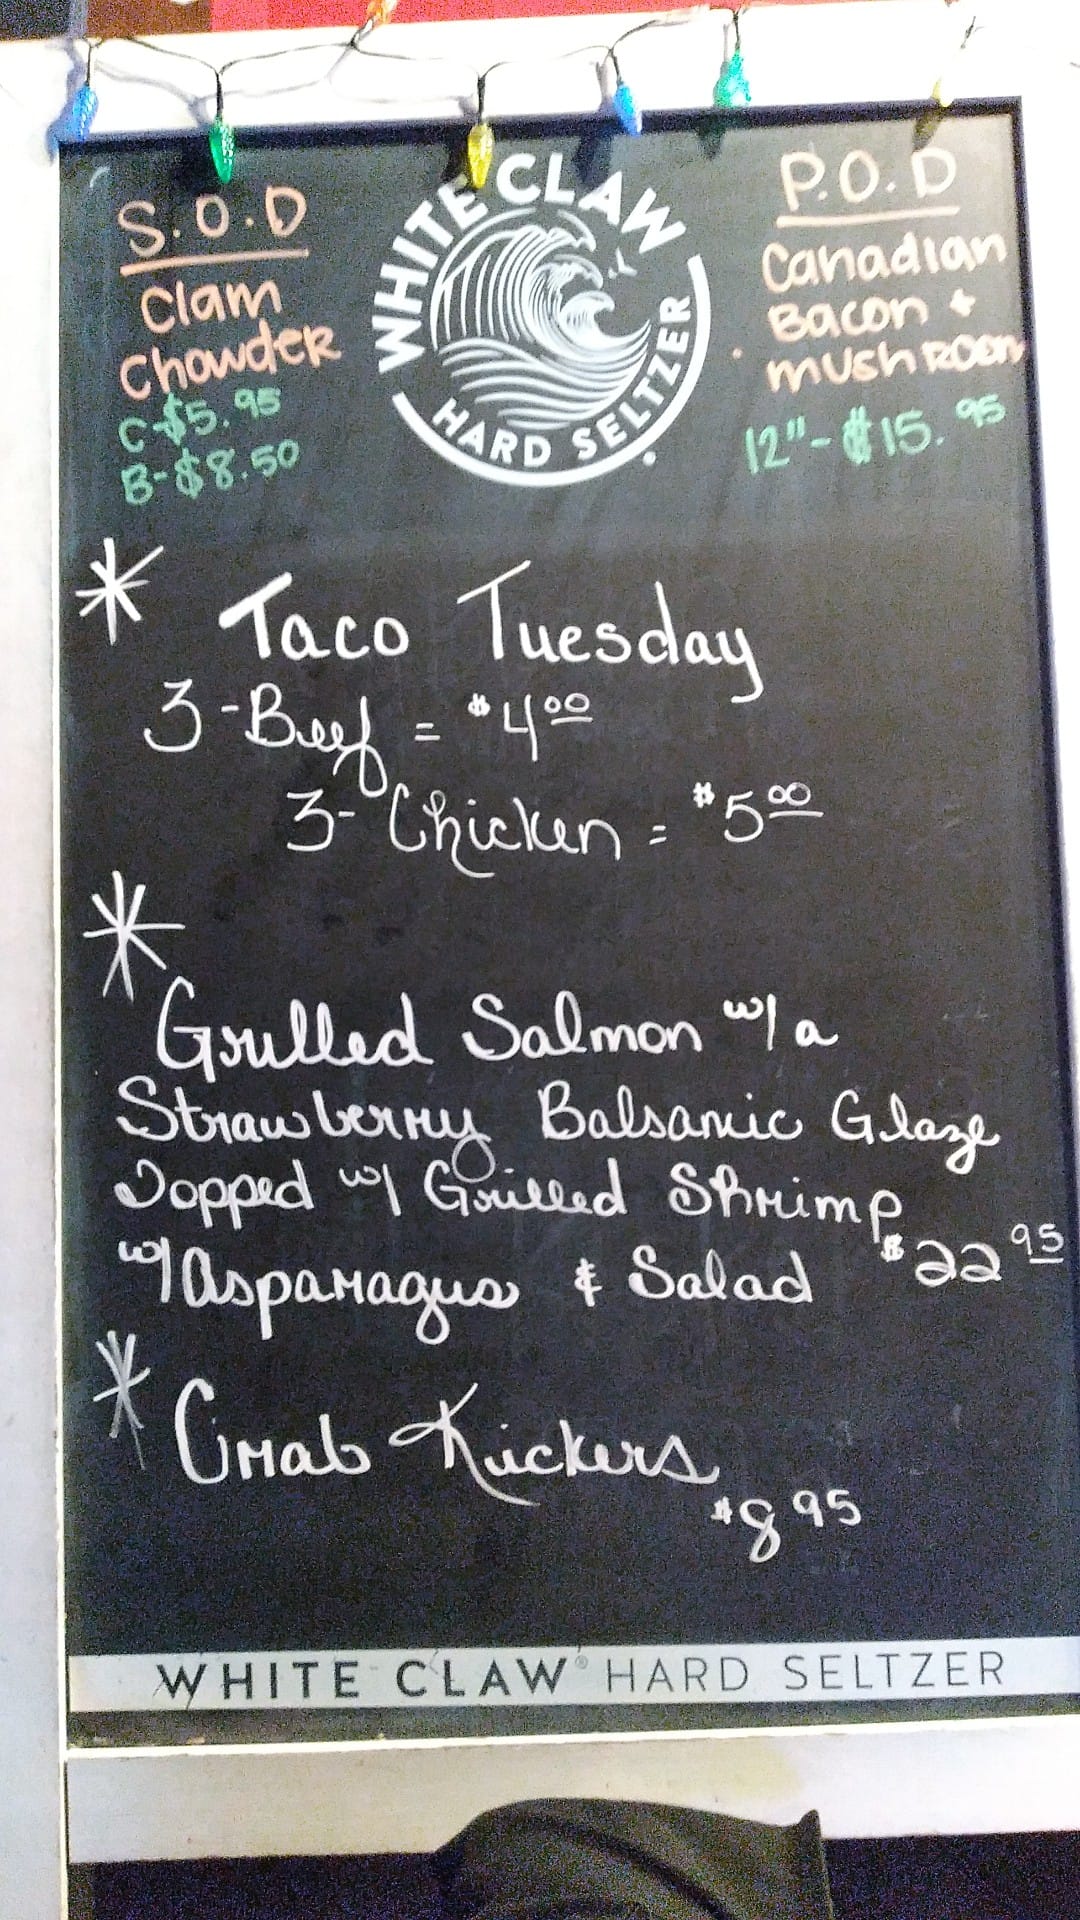 S.O.D
Clam
Chowder
C-$5.95
B-$8.50
WHITE CLAW
HARD SELTZER
P.O.D
Canadian
Bacon +
mushroom
12"-$15.95
* Taco Tuesday
3-Beef = $4.00
3-Chicken = $5.00
*
Grilled Salmon w/ a
Strawberry Balsamic Glaze
Topped w/ Grilled Shrimp
w/ Asparagus & Salad $22.95
* Crab Kickers
$8.95
WHITE CLAW® HARD SELTZER